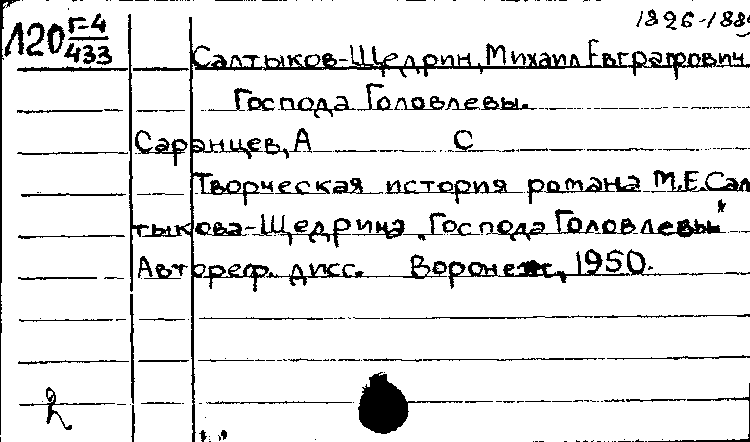 1826-188
120 Г-4
433
Салтыков-Щедрин, Михаил Евграфович
Господа Головлевы.
Саранцев, А С
Творческая история романа М.Е.Сал
тыкова-Щедрина „Господа Головлевы"
Автореф. дисс. Воронеж, 1950.